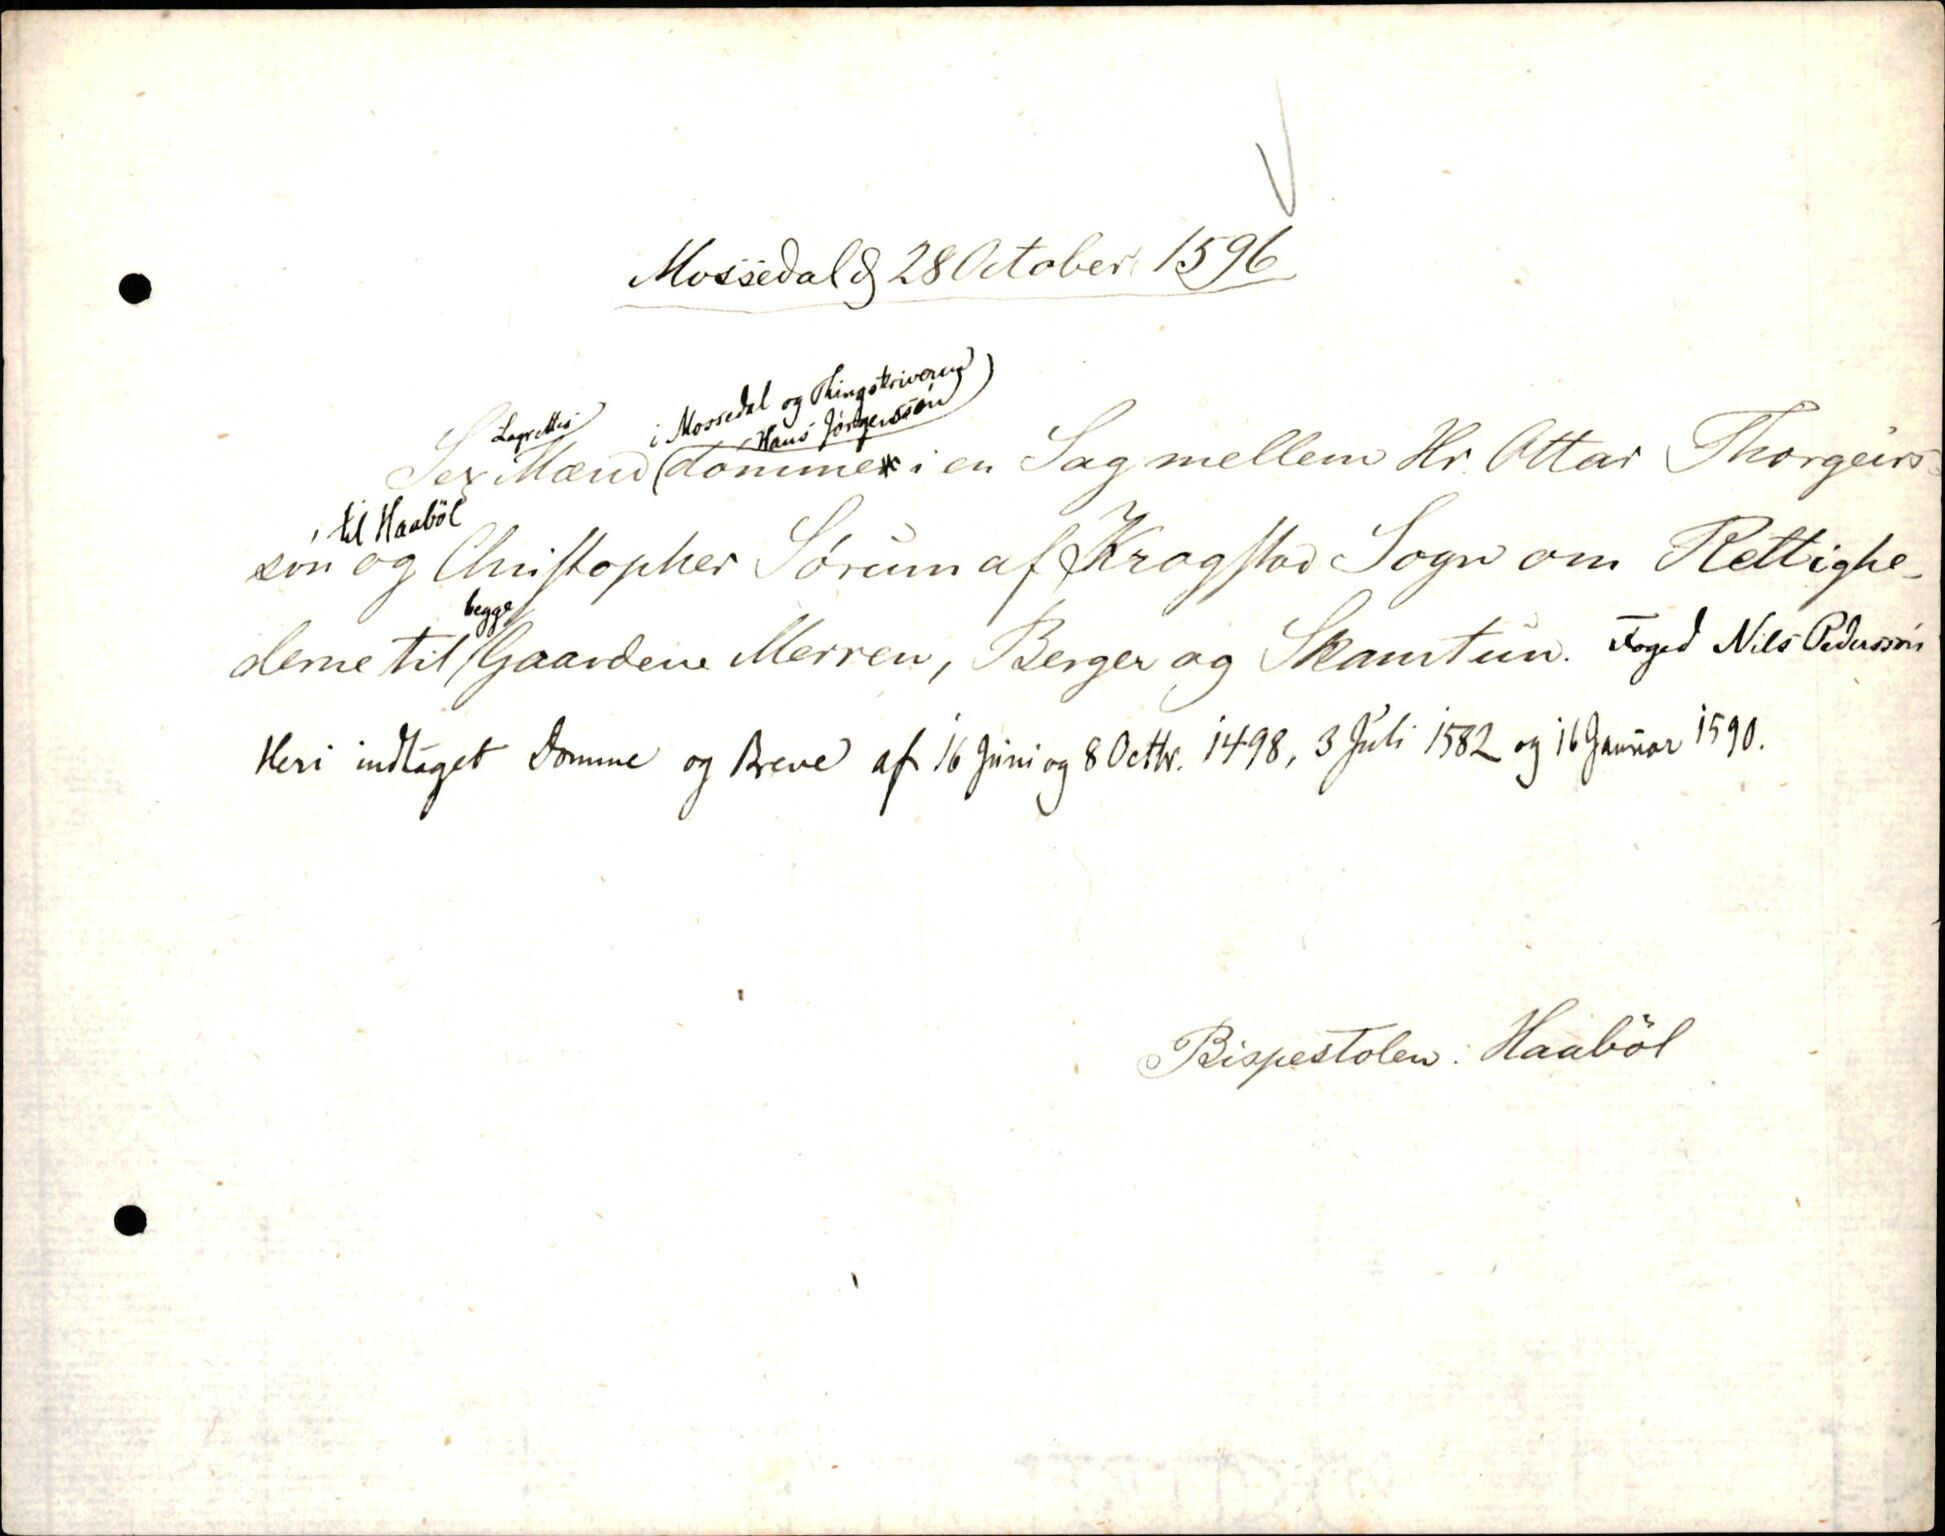 Mossedal d 28 October 1596
i Mossedal og Thingskriveren)
Lagrettis Hans Jörgenssön
Sex Mænd (dömme i en Sag mellem Hr. Ottar Thorgeirs-
til Haaböl
sön og Christopher Sörum af Krogstad Sogn om Rettighe-
begge
derne til Gaardene Merren, Berger og Skamtun. Foged Nils Pederssön
Heri indtaget Domme og Breve af 16 Juni og 8 Octbr. 1498, 3 Juli 1582 og 16 Januar 1590.
Bispestolen. Haaböl